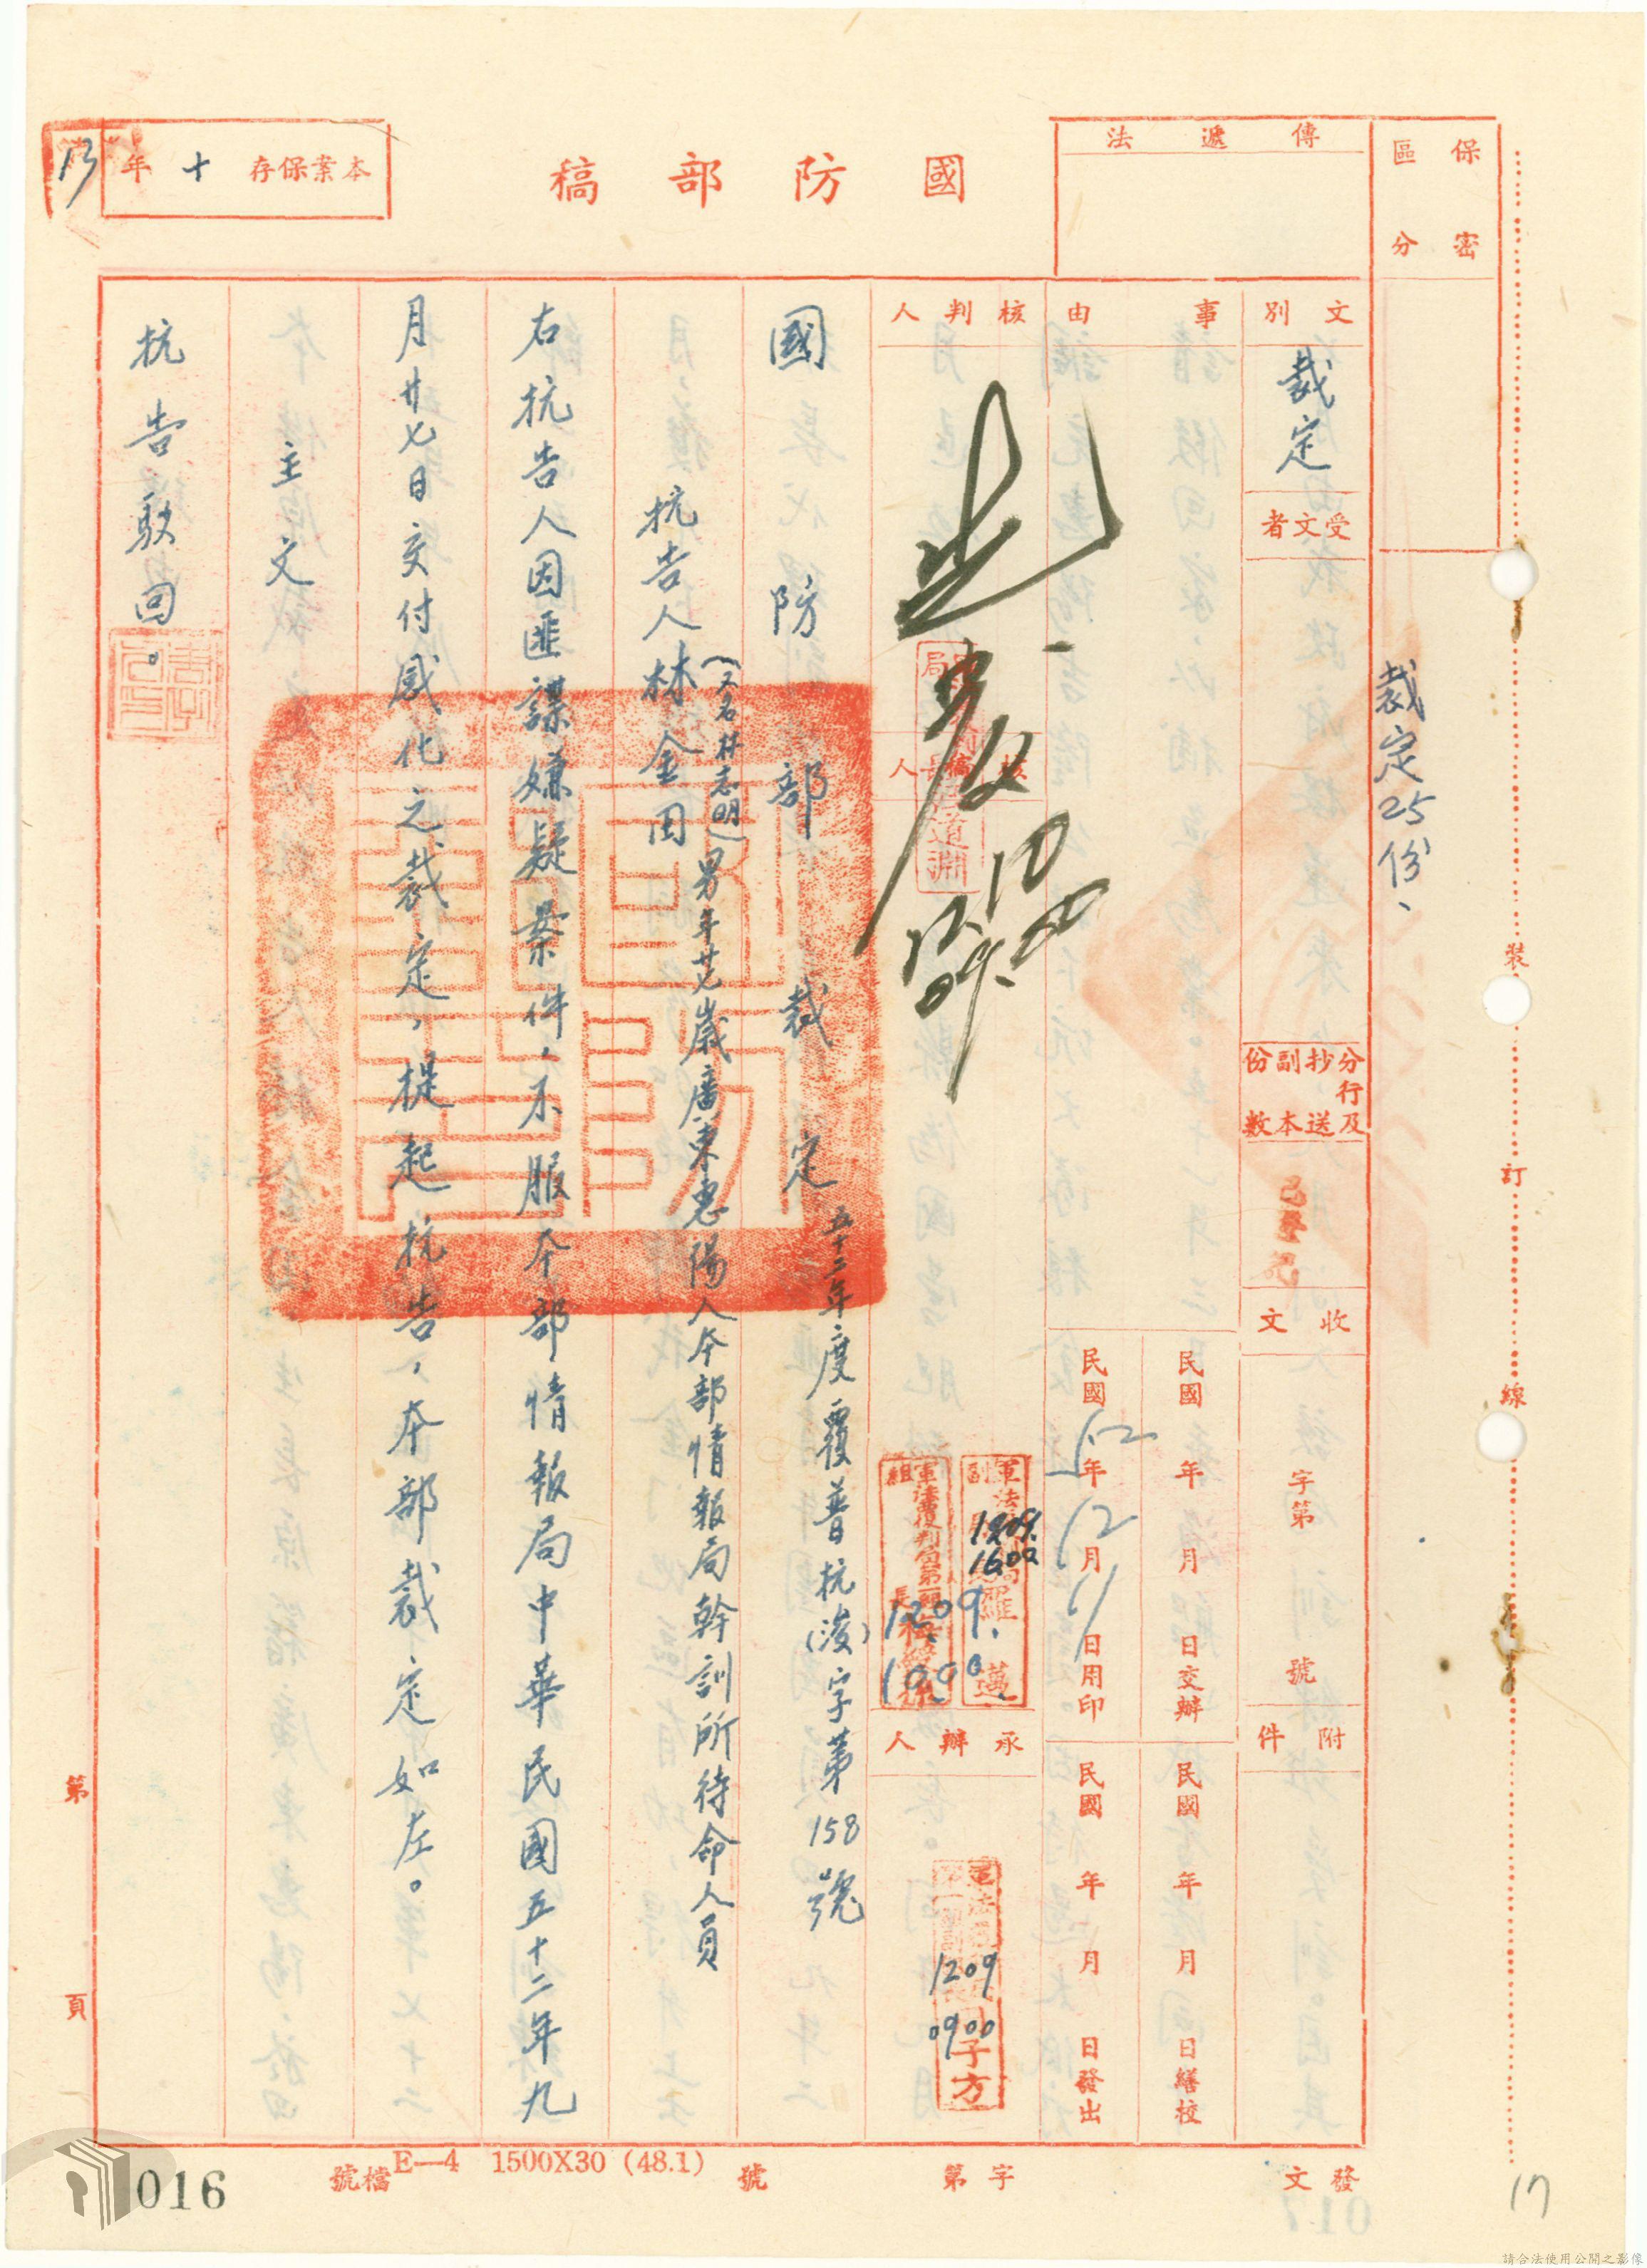 國防部稿
本案保存十年
13
保密區分
傳遞法
文別
裁定
受文者
事由
核判人
核稿人
承辦人
分行及抄送副本份數
已登記
收文
字第
號
附件
民國 年 月 日交辦
民國 年 月 日繕校
民國52年12月11日用印
民國 年 月 日發出
裁定25份、
裝
訂
線
軍法局副局長羅邁
1209.
1600
1209.
1000
1209
0900
國防部裁定 五十二年度覆普抗(浚)字第158號
抗告人林金田(又名林志明)男年廿七歲廣東惠陽人本部情報局幹訓所待命人員
右抗告人因匪諜嫌疑案件,不服本部情報局中華民國五十二年九
月廿七日交付感化之裁定,提起抗告,本部裁定如左。
主文
抗告駁回。
第 頁
發文
字第
號
檔號
E—4 1500X30 (48.1)
016
17
請合法使用公開之影像